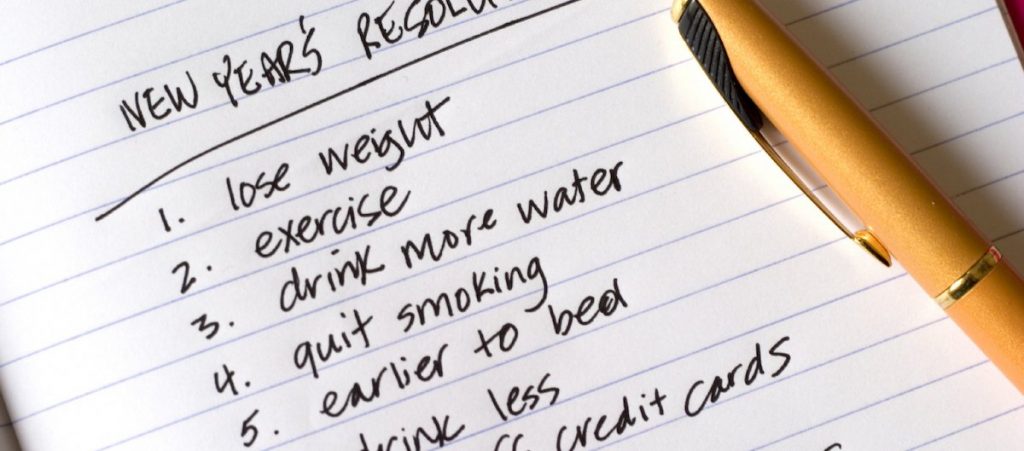 NEW YEAR'S RESOLU
1. lose weight
2. exercise
3. drink more water
4. quit smoking
5. earlier to bed
drink less
credit cards